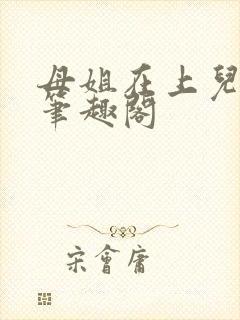 母姐在上兒
筆趣閣
宋會庸